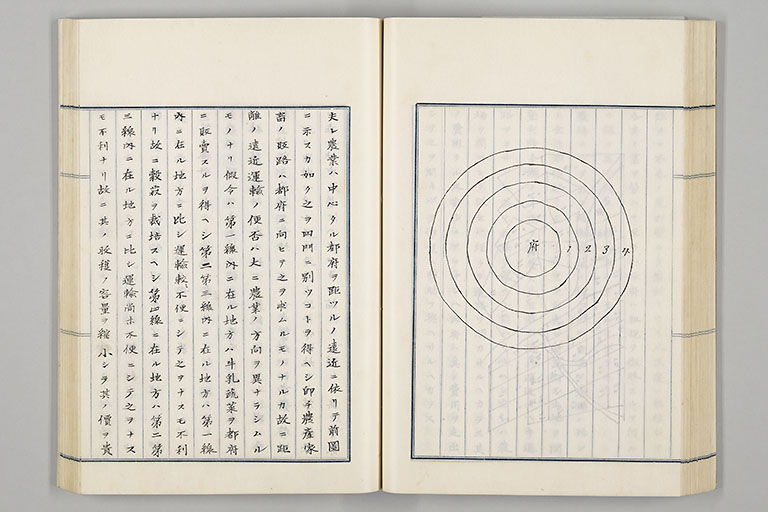 府 1 2 3 4
夫レ農業ハ中心タル都府ヲ距ツルノ遠近ニ依リテ前圖
ニ示スカ如ク之ヲ四門ニ別ツコトヲ得ヘシ卽チ農産家
畜ノ販路ハ都府ニ向ヒテ之ヲ求ムルモノナルカ故ニ距
離ノ遠近運輸ノ便否ハ大ニ農業ノ方向ヲ異ナラシムル
モノナリ假令ハ第一線內ニ在ル地方ハ牛乳蔬菜ヲ都府
ニ販賣スルヲ得ヘシ第二第三線內ニ在ル地方ハ第一線
內ニ在ル地方ニ比シ運輸較々不便ニシテ之ヲナスモ不利
ナリ故ニ穀菽ヲ栽培スヘシ第四線ニ在ル地方ハ第二第
三線內ニ在ル地方ニ比シ運輸尚ホ不便ニシテ之ヲナス
モ不利ナリ故ニ其ノ收穫ノ容量ヲ縮小シテ其ノ價ヲ貴